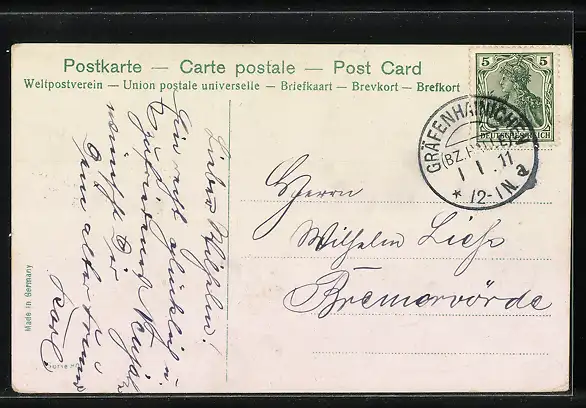 Postkarte — Carte postale — Post Card
Weltpostverein – Union postale universelle – Briefkaart – Brevkort – Brefkort
5 5
DEUTSCHES REICH
GRÄFENHAINICHEN
(BZ. HALLE)
1 1 .11
* 12-1N. a
Lieber Wilhelm!
Ein recht glückliches u.
zufriedenes Neujahr
wünscht Dir
Dein alter Freund
Karl.
Herrn
Wilhelm
Bremervörde
Made in Germany